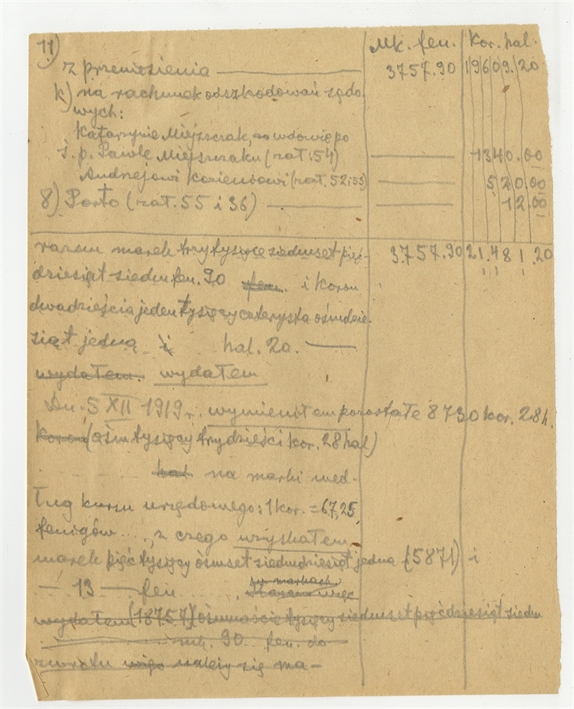 11) Mk. fen. Kor. hal.
z przeniesienia — 3757.90 19609.20
k) na rachunek odszkodowań sądo
wych:
Katarzynie Miejszczak, wdowie po
ś. p. Pawle Miejszczaku (zał. 54) — 1340.00
Andrzejowi (zał. 52 i 53) — 520.00
8) Porto (zał. 55 i 36) — 12.00
razem marek trzy tysiące siedmset pięć- 3757.90 21.481.20
dziesiąt siedm fen. 90 fen. i koron
dwadzieścia jeden tysięcy czterysta ośmdzie-
siąt jedną i hal. 20. —
wydałem. wydałem
Dn. 5 XII 1919 r. wymieniłem pozostałe 8730 kor. 28 h.
Koron (ośm tysięcy trzydzieści kor. 28 hal)
hal na marki wed-
ług kursu urzędowego: 1 kor. = 67,25
fenigów..., z czego uzyskałem
marek pięć tysięcy ośmset siedmdziesiąt jedną (5871) i
— 13 — fen
w markach
Razem więc
wydałem (18757) ośmnaście tysięcy siedmset pięćdziesiąt siedm
mk. 90. fen. do
zwrotu należy się ma-